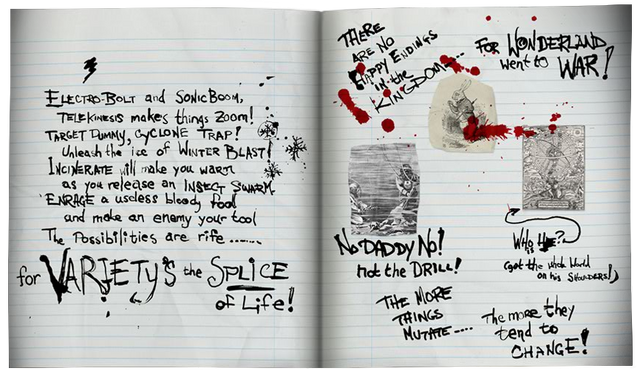 ELECTRO-BOLT and SONIC BOOM,
TELEKINESIS makes things Zoom!
TARGET DUMMY, CYCLONE TRAP!
Unleash the ice of WINTER BLAST!
INCINERATE will make you warm
as you release an INSECT SWARM
ENRAGE a useless bloody fool
and make an enemy your tool
The Possibilities are rife.......
for VARIETY's the SPLICE
of Life!
THERE
ARE NO
HAPPY ENDINGS
in the
KINGDOM....
FOR WONDERLAND
went to WAR!
NO DADDY NO!
not the DRILL!
THE MORE
THINGS
MUTATE....
Who He?
(got the whole World
on his SHOULDERS!)
The more they
tend to
CHANGE!